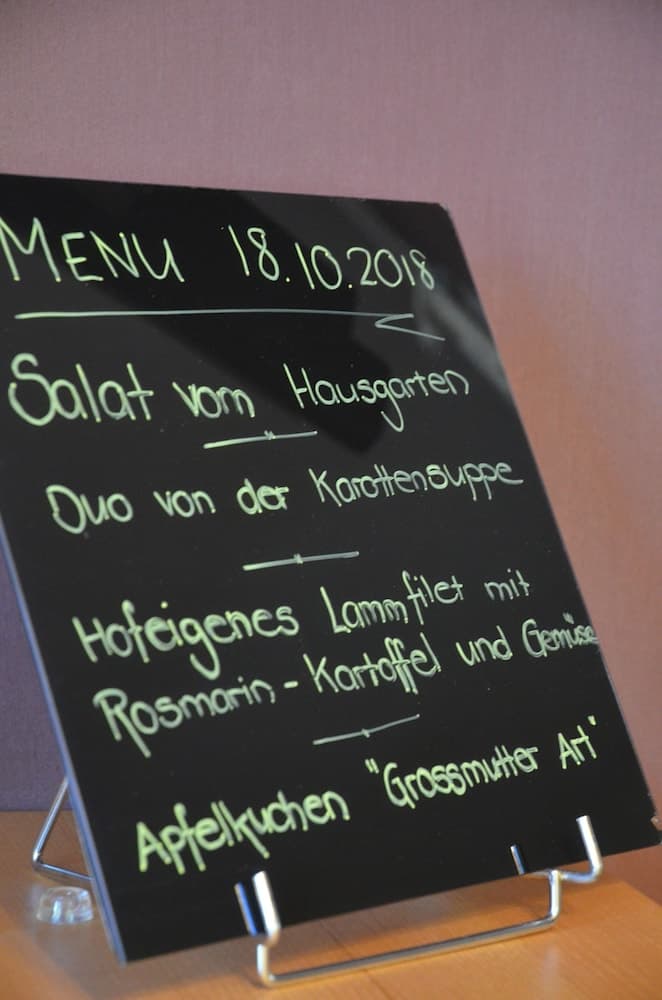 MENU 18.10.2018
Salat vom Hausgarten
Duo von der Karottensuppe
Hofeigenes Lammfilet mit
Rosmarin-Kartoffel und Gemüse
Apfelkuchen "Grossmutter Art"